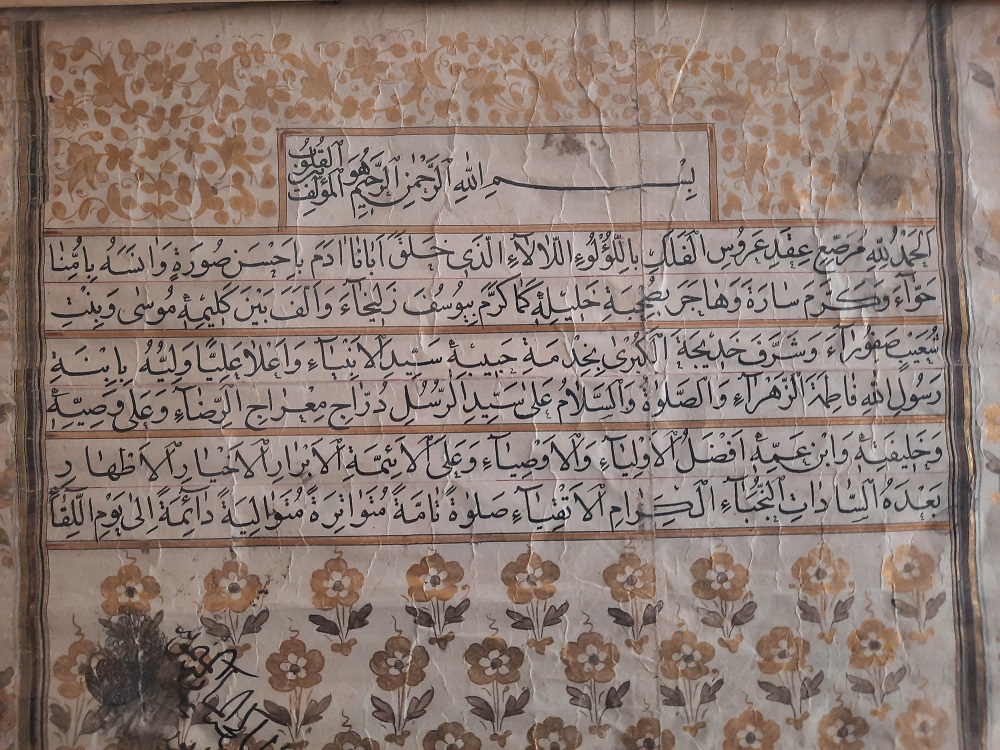 بِسْمِ اللهِ الرَّحْمٰنِ الرَّحِيْمِ هُوَ الْمُؤَلِّفُ بَيْنَ الْقُلُوبِ
اَلْحَمْدُ لِلّٰهِ مُرَصِّعِ عِقْدِ عَرُوسِ الْفَلَكِ بِاللُّؤْلُؤِ اللَّالَاءِ الَّذِى خَلَقَ اَبَانَا اٰدَمَ بِاَحْسَنِ صُورَةٍ وَاٰنَسَهُ بِاُمِّنَا
حَوَّاءَ وَكَرَّمَ سَارَةَ وَهَاجَرَ بِصُحْبَةِ خَلِيلِهِ كَمَا كَرَّمَ بِيُوسُفَ زَلِيخَاءَ وَاَلَّفَ بَيْنَ كَلِيمِهِ مُوسٰى وَبِنْتِ
شُعَيْبٍ صَفُورَاءَ وَشَرَّفَ خَدِيجَةَ الْكُبْرٰى بِخِدْمَةِ حَبِيبِهِ سَيِّدِ الْاَنْبِيَاءِ وَاَعْلَا عَلِيًّا وَلِيَّهُ بِابْنَةِ
رَسُولِ اللهِ فَاطِمَةَ الزَّهْرَاءِ وَالصَّلٰوةُ وَالسَّلَامُ عَلٰى سَيِّدِ الرُّسُلِ دُرَّاجِ مِعْرَاجِ الرِّضَاءِ وَعَلٰى وَصِيِّهِ
وَخَلِيفَتِهِ وَابْنِ عَمِّهِ اَفْضَلِ الْاَوْلِيَاءِ وَالْاَوْصِيَاءِ وَعَلَى الْاَئِمَّةِ الْاَبْرَارِ الْاَخْيَارِ الْاَطْهَارِ
بَعْدَهُ السَّادَاتِ النُّجَبَاءِ الْكِرَامِ الْاَتْقِيَاءِ صَلٰوةً تَامَّةً مُتَوَاتِرَةً مُتَوَالِيَةً دَائِمَةً اِلٰى يَوْمِ اللِّقَاءِ